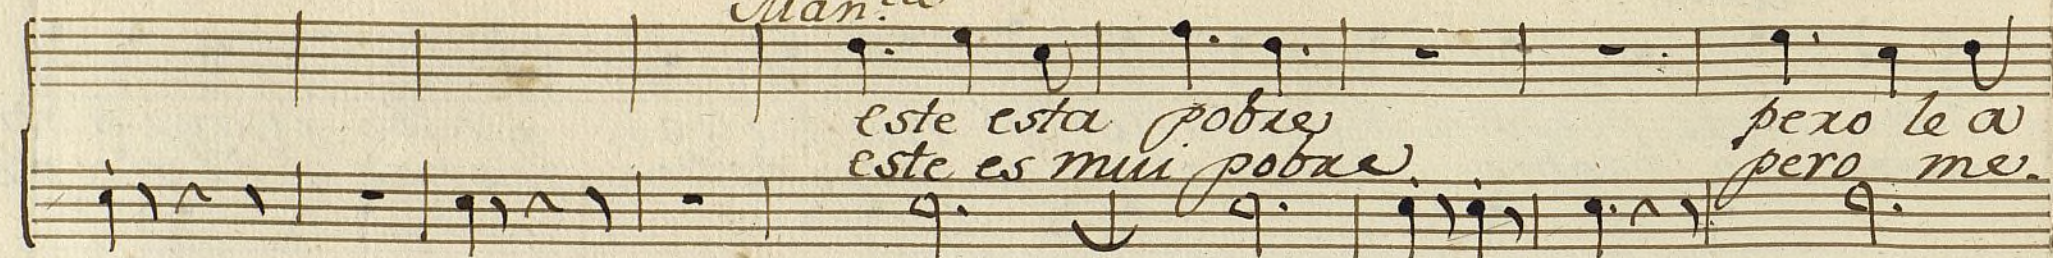 Man.la
este esta pobre pero le a
este es mui pobre pero me.